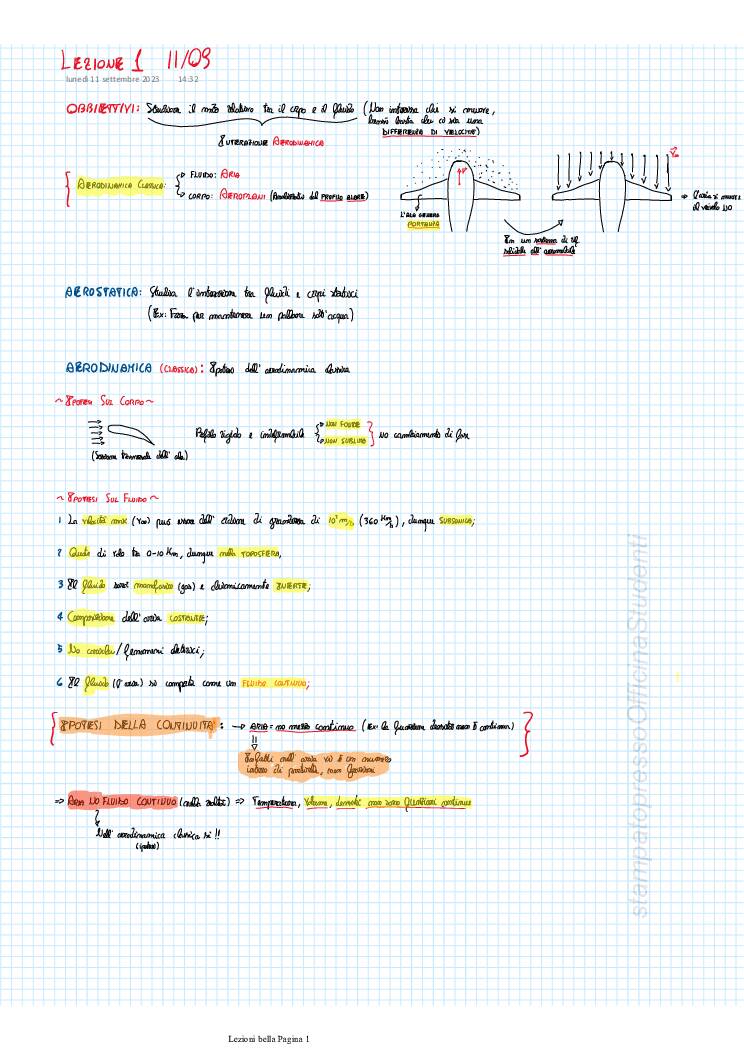 LEZIONE 1 11/09
lunedì 11 settembre 2023 14:32
OBBIETTIVI: Studiare il moto relativo tra il corpo e il fluido (Non interessa chi si muove,
basta che ci sia una
DIFFERENZA DI VELOCITÀ)
INTERAZIONE AERODINAMICA
AERODINAMICA CLASSICA:
FLUIDO: ARIA
CORPO: AEROPLANI (PROFILO ALARE)
L'ALA GENERA
PORTANZA
In un sistema di rif
solidale all'aeromobile
L'aria si muove
il velivolo NO
AEROSTATICA: Studia l'interazione tra fluidi e corpi statici
(Ex: Forza per mantenere un pallone sott'acqua)
AERODINAMICA (CLASSICA): Ipotesi dell'aerodinamica classica
~ IPOTESI SUL CORPO ~
(Sezione trasversale dell'ala)
Profilo rigido e indeformabile
NON FONDE
NON SUBLIMA
NO cambiamento di fase
~ IPOTESI SUL FLUIDO ~
1 La velocità max (V∞) può essere dell'ordine di grandezza di 10² m/s (360 Km/h), dunque SUBSONICA;
2 Quota di volo tra 0-10 Km, dunque nella TOPOSFERA;
3 Il fluido sarà monofasico (gas) e chimicamente INERTE;
4 Composizione dell'aria COSTANTE;
5 No carichi/fenomeni elettrici;
6 Il fluido (l'aria) si comporta come un FLUIDO CONTINUO;
IPOTESI DELLA CONTINUITÀ: → ARIA = no mezzo continuo (Ex: la funzione densità non è continua)
Infatti nell'aria vi è un numero
intero di particelle, non frazioni
⇒ ARIA NO FLUIDO CONTINUO (nella realtà) ⇒ Temperatura, Volume, densità non sono funzioni continue
Nell'aerodinamica classica sì !!
(ipotesi)
stampatopressoOfficinaStudenti
Lezioni bella Pagina 1